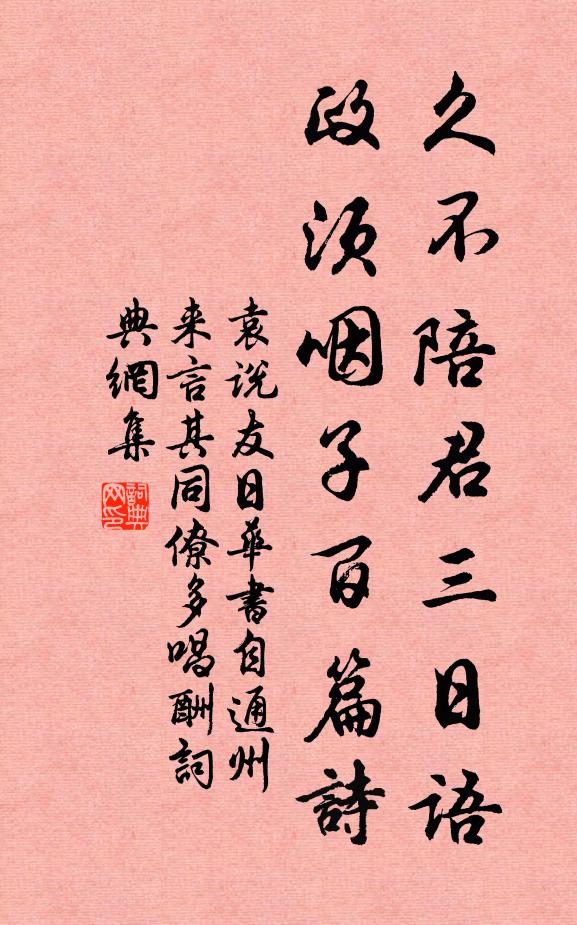 久不陪君三日語
政須咽子百篇詩
袁說友日華書自通州
来言其同僚多唱酬詞
典網集
詞典网印